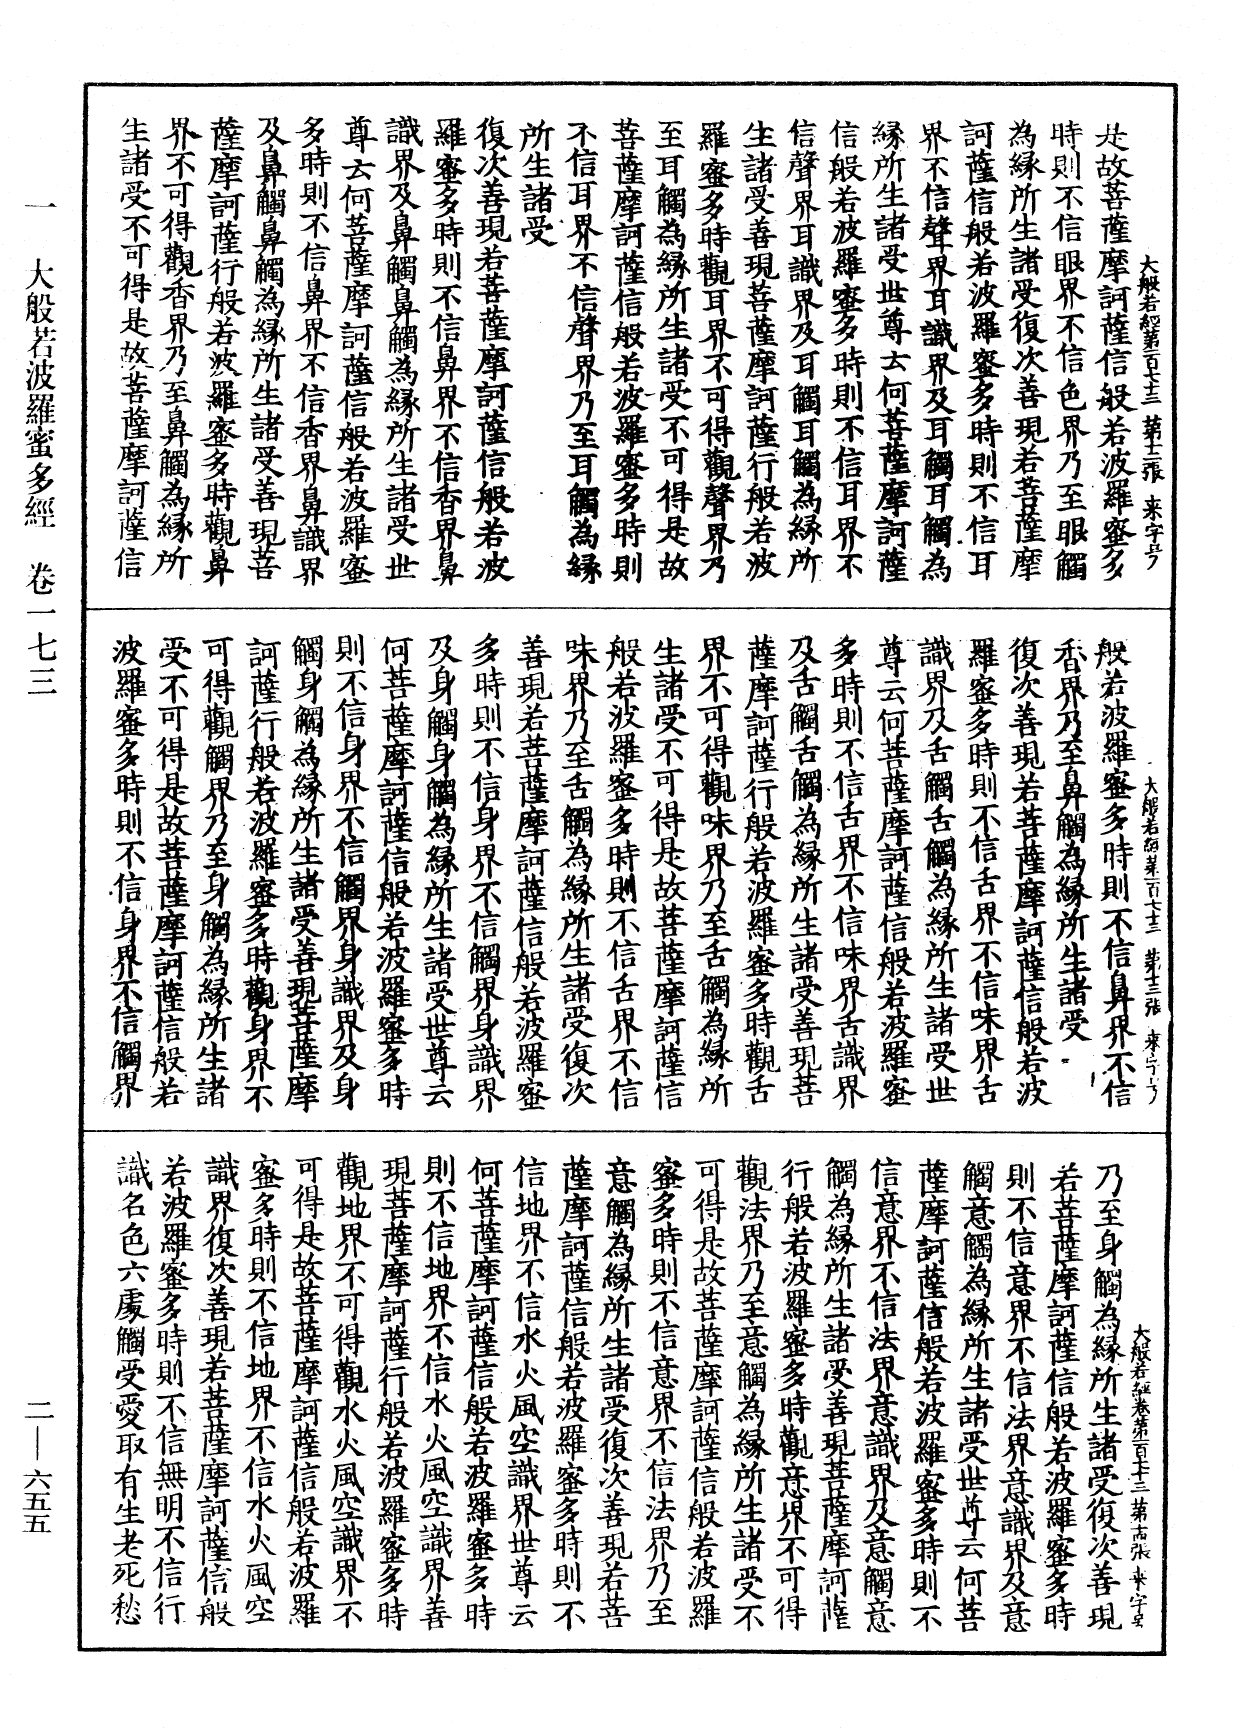 大般若經第一百七十三 第十二張 来字号
是故菩薩摩訶薩信般若波羅蜜多
時則不信眼界不信色界乃至眼觸
為緣所生諸受復次善現若菩薩摩
訶薩信般若波羅蜜多時則不信耳
界不信聲界耳識界及耳觸耳觸為
緣所生諸受世尊云何菩薩摩訶薩
信般若波羅蜜多時則不信耳界不
信聲界耳識界及耳觸耳觸為緣所
生諸受善現菩薩摩訶薩行般若波
羅蜜多時觀耳界不可得觀聲界乃
至耳觸為緣所生諸受不可得是故
菩薩摩訶薩信般若波羅蜜多時則
不信耳界不信聲界乃至耳觸為緣
所生諸受
復次善現若菩薩摩訶薩信般若波
羅蜜多時則不信鼻界不信香界鼻
識界及鼻觸鼻觸為緣所生諸受世
尊云何菩薩摩訶薩信般若波羅蜜
多時則不信鼻界不信香界鼻識界
及鼻觸鼻觸為緣所生諸受善現菩
薩摩訶薩行般若波羅蜜多時觀鼻
界不可得觀香界乃至鼻觸為緣所
生諸受不可得是故菩薩摩訶薩信
大般若經第一百七十三 第十三張 来字号
般若波羅蜜多時則不信鼻界不信
香界乃至鼻觸為緣所生諸受
復次善現若菩薩摩訶薩信般若波
羅蜜多時則不信舌界不信味界舌
識界及舌觸舌觸為緣所生諸受世
尊云何菩薩摩訶薩信般若波羅蜜
多時則不信舌界不信味界舌識界
及舌觸舌觸為緣所生諸受善現菩
薩摩訶薩行般若波羅蜜多時觀舌
界不可得觀味界乃至舌觸為緣所
生諸受不可得是故菩薩摩訶薩信
般若波羅蜜多時則不信舌界不信
味界乃至舌觸為緣所生諸受復次
善現若菩薩摩訶薩信般若波羅蜜
多時則不信身界不信觸界身識界
及身觸身觸為緣所生諸受世尊云
何菩薩摩訶薩信般若波羅蜜多時
則不信身界不信觸界身識界及身
觸身觸為緣所生諸受善現菩薩摩
訶薩行般若波羅蜜多時觀身界不
可得觀觸界乃至身觸為緣所生諸
受不可得是故菩薩摩訶薩信般若
波羅蜜多時則不信身界不信觸界
大般若經卷第一百七十三 第十四張 来字号
乃至身觸為緣所生諸受復次善現
若菩薩摩訶薩信般若波羅蜜多時
則不信意界不信法界意識界及意
觸意觸為緣所生諸受世尊云何菩
薩摩訶薩信般若波羅蜜多時則不
信意界不信法界意識界及意觸意
觸為緣所生諸受善現菩薩摩訶薩
行般若波羅蜜多時觀意界不可得
觀法界乃至意觸為緣所生諸受不
可得是故菩薩摩訶薩信般若波羅
蜜多時則不信意界不信法界乃至
意觸為緣所生諸受復次善現若菩
薩摩訶薩信般若波羅蜜多時則不
信地界不信水火風空識界世尊云
何菩薩摩訶薩信般若波羅蜜多時
則不信地界不信水火風空識界善
現菩薩摩訶薩行般若波羅蜜多時
觀地界不可得觀水火風空識界不
可得是故菩薩摩訶薩信般若波羅
蜜多時則不信地界不信水火風空
識界復次善現若菩薩摩訶薩信般
若波羅蜜多時則不信無明不信行
識名色六處觸受愛取有生老死愁
一 大般若波羅蜜多經 卷一七三 二—六五五